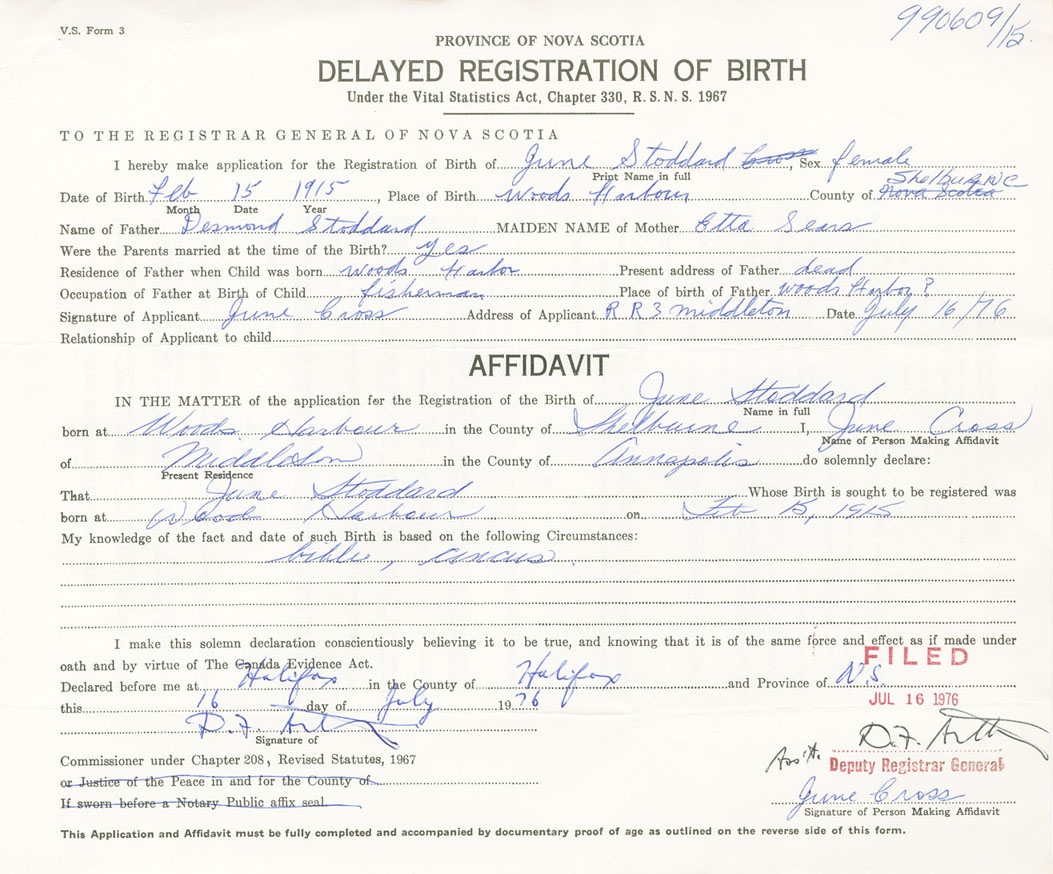 V.S. Form 3
990609/15.
PROVINCE OF NOVA SCOTIA
DELAYED REGISTRATION OF BIRTH
Under the Vital Statistics Act, Chapter 330, R. S. N. S. 1967
TO THE REGISTRAR GENERAL OF NOVA SCOTIA
I hereby make application for the Registration of Birth of June Stoddard Cross, Sex female
Print Name in full
Shelburne
Date of Birth Feb 15 1915, Place of Birth Woods Harbour County of Nova Scotia
Month Date Year
Name of Father Desmond Stoddard MAIDEN NAME of Mother Etta Sears
Were the Parents married at the time of the Birth? Yes
Residence of Father when Child was born Woods Harbor Present address of Father dead
Occupation of Father at Birth of Child fisherman Place of birth of Father Woods Harbor?
Signature of Applicant June Cross Address of Applicant R R 3 Middleton Date July 16/76
Relationship of Applicant to child
AFFIDAVIT
IN THE MATTER of the application for the Registration of the Birth of June Stoddard
Name in full
born at Woods Harbour in the County of Shelburne I, June Cross
Name of Person Making Affidavit
of Middleton in the County of Annapolis do solemnly declare:
Present Residence
That June Stoddard Whose Birth is sought to be registered was
born at Wood Harbour on Feb 15, 1915
My knowledge of the fact and date of such Birth is based on the following Circumstances:
bible, cencus
I make this solemn declaration conscientiously believing it to be true, and knowing that it is of the same force and effect as if made under
oath and by virtue of The Canada Evidence Act.
FILED
Declared before me at Halifax in the County of Halifax and Province of N.S.
this 16 day of July 1976
JUL 16 1976
D.F.
Signature of
D.F.
Commissioner under Chapter 208, Revised Statutes, 1967
Ass't. Deputy Registrar General
or Justice of the Peace in and for the County of
June Cross
If sworn before a Notary Public affix seal.
Signature of Person Making Affidavit
This Application and Affidavit must be fully completed and accompanied by documentary proof of age as outlined on the reverse side of this form.